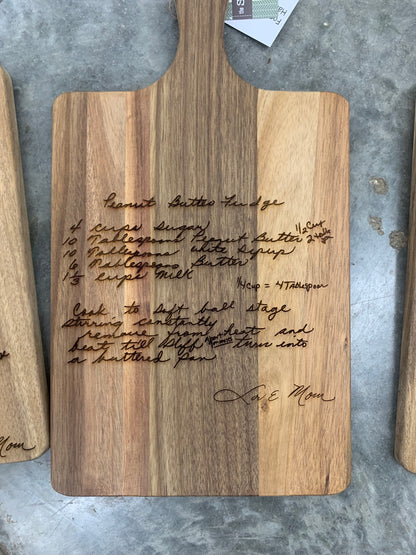 Peanut Butter Fudge
4 cups sugar
10 Tablespoons Peanut Butter 1/2 Cup
10 Tablespoons white syrup
6 Tablespoons Butter
1 1/3 cups milk
1/4 cup = 4 Tablespoon
Cook to soft ball stage
stirring constantly
remove from heat and
beat till stiff turn into
a buttered pan
Love Mom
Mom